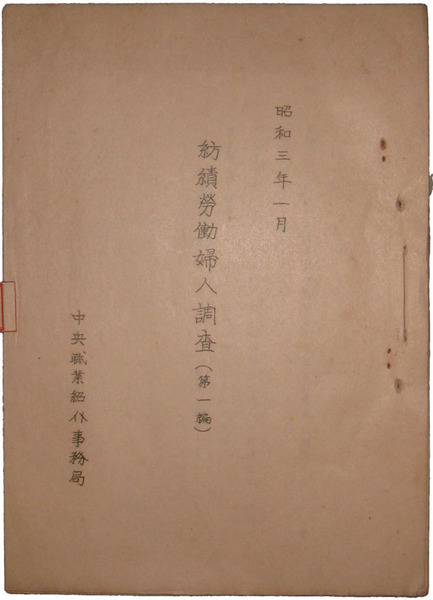 昭和三年一月
紡績勞働婦人調査(第一編)
中央職業紹介事務局